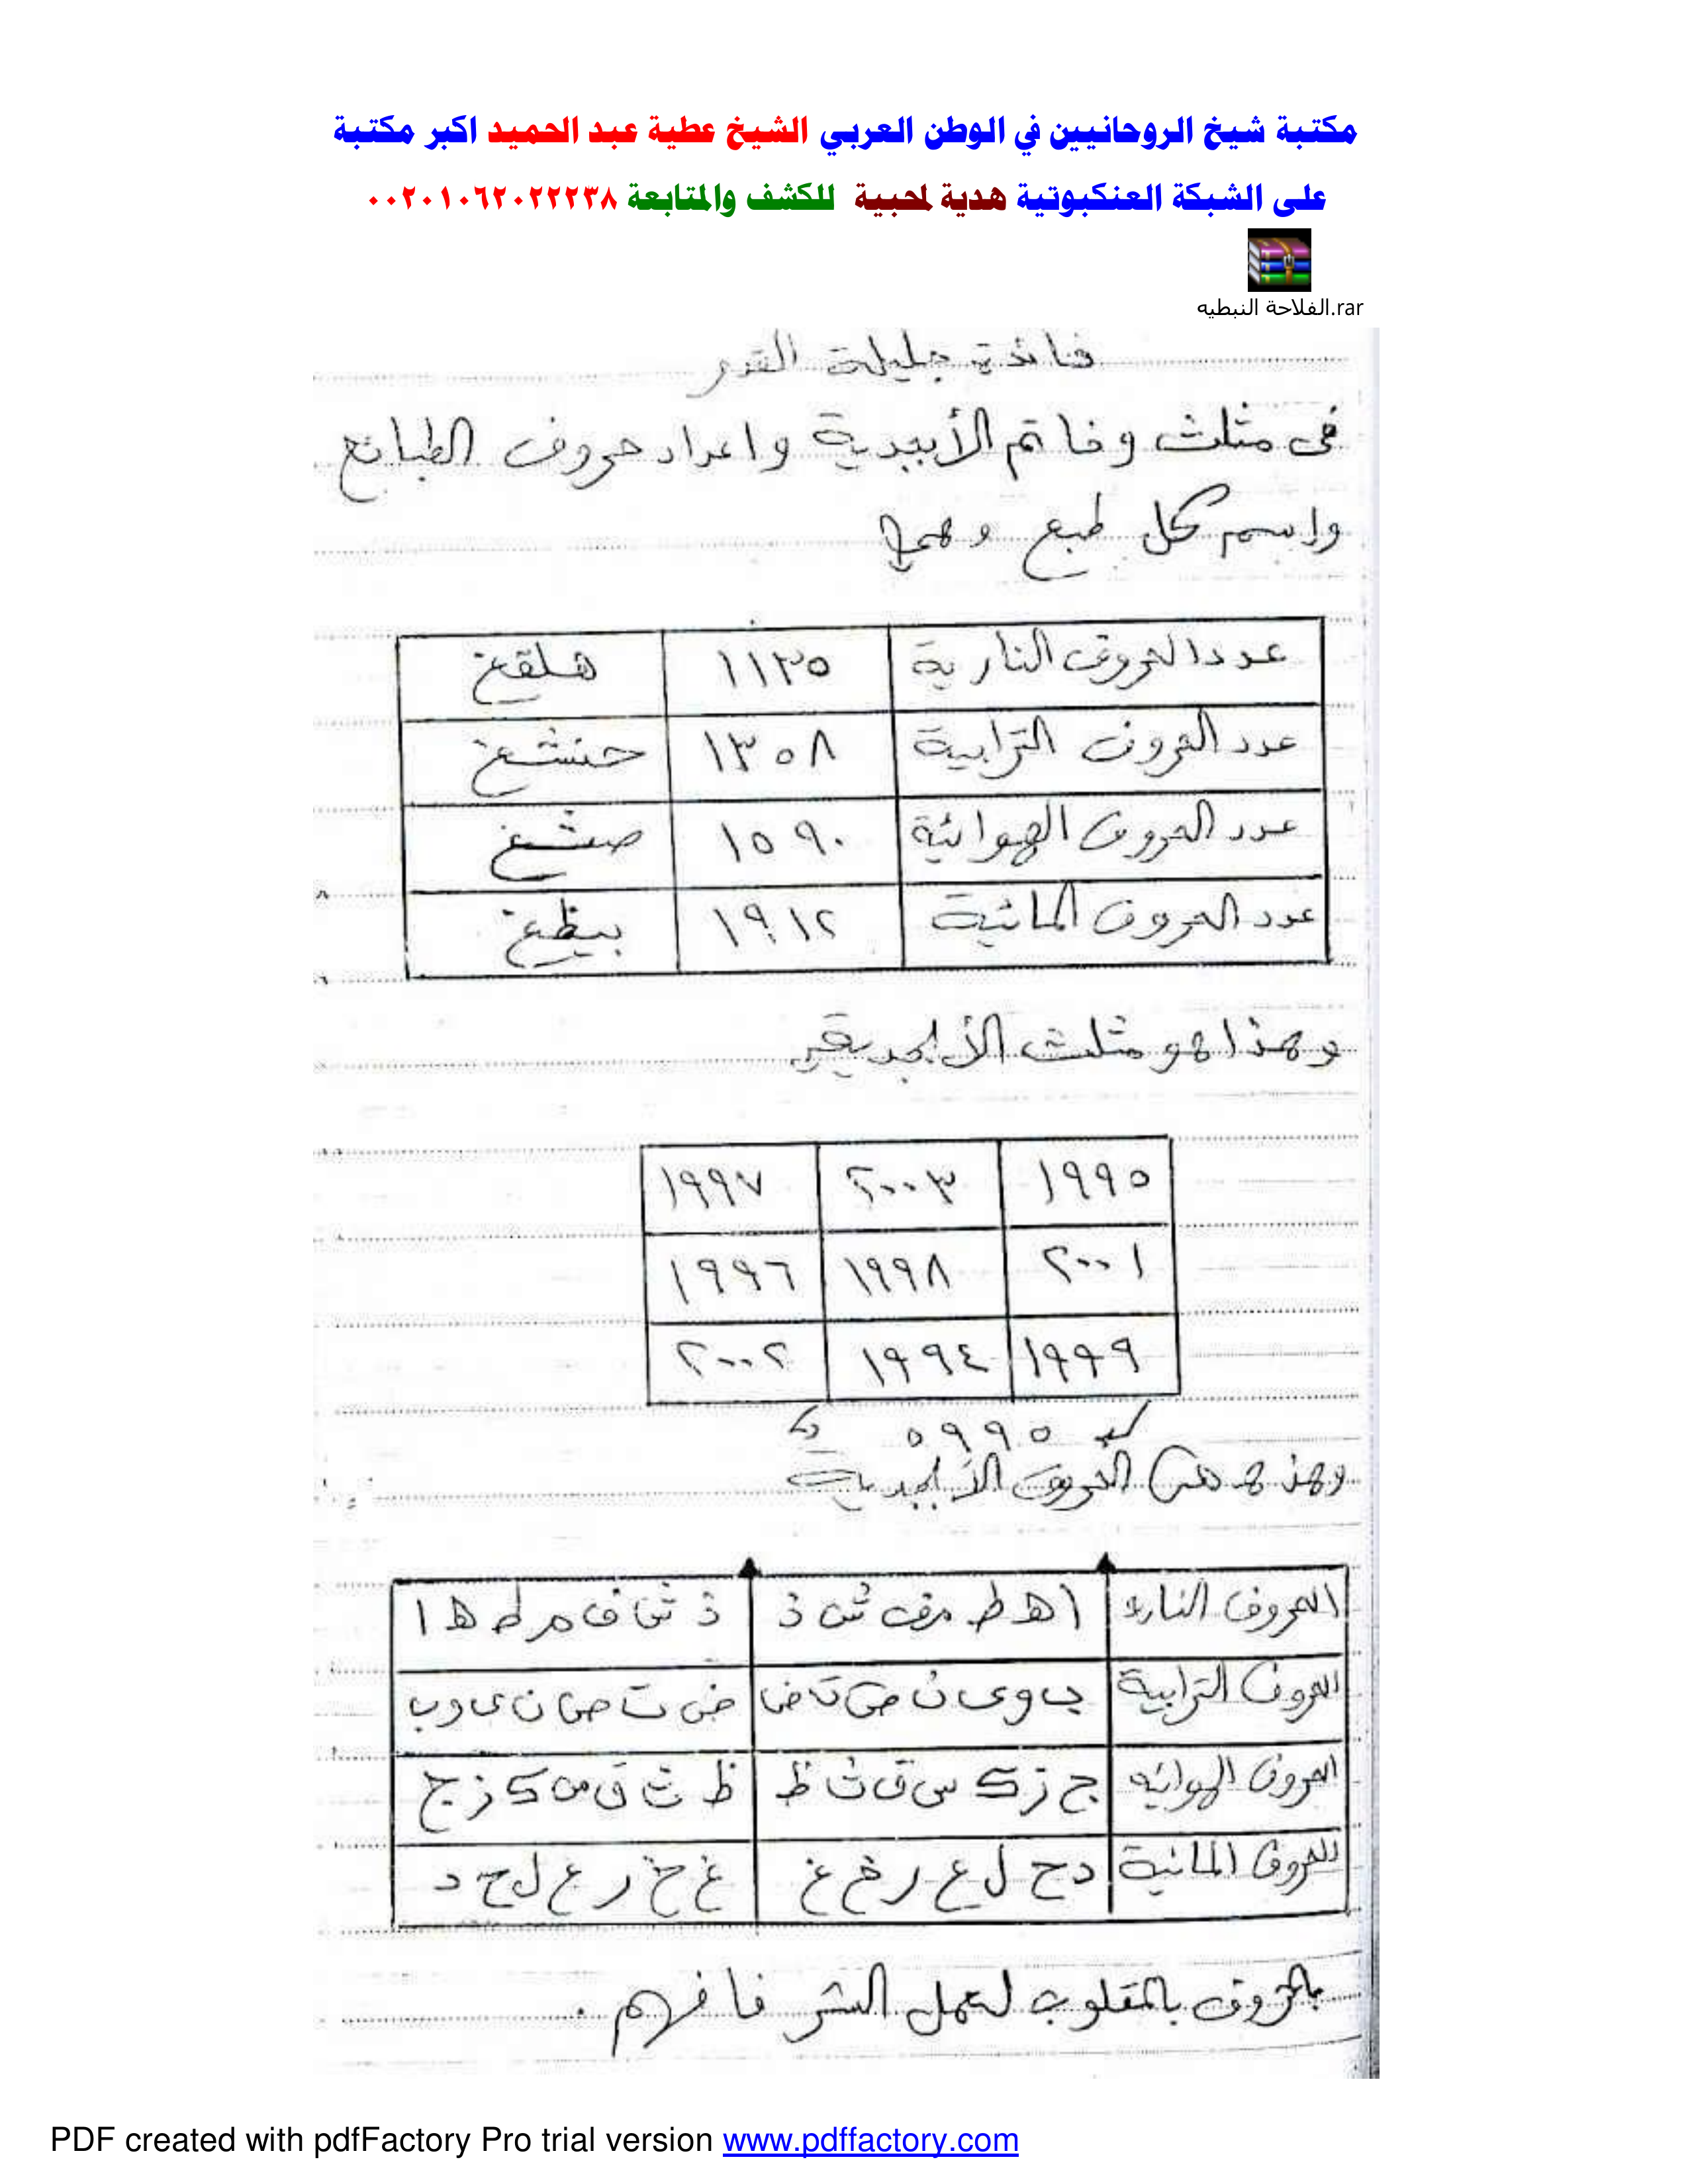 مكتبة شيخ الروحانيين في الوطن العربي الشيخ عطية عبد الحميد اكبر مكتبة
على الشبكة العنكبوتية هدية لمحبية للكشف والمتابعة ٠٠٢٠١٠٦٢٠٢٢٢٣٨
الفلاحة النبطيه.rar
فائدة جليلة القدر
فى مثلث وخاتم الأبجدية واعداد حروف الطبائع
وإسم كل طبع وهى
عدد الحروف النارية ١١٣٥ هلقغ
عدد الحروف الترابية ١٣٥٨ حنشغ
عدد الحروف الهوائية ١٥٩٠ صثغ
عدد الحروف المائية ١٩١٢ بيظغ
وهذا هو مثلث الأبجدية
١٩٩٥ ٢٠٠٣ ١٩٩٧
٢٠٠١ ١٩٩٨ ١٩٩٦
١٩٩٩ ١٩٩٤ ٢٠٠٢
٥٩٩٥
وهذه هى الحروف الأبجدية
الحروف الناريه ا هـ ط م ف ش ذ ذ ش ف م ط هـ ا
الحروف الترابية ب و ى ن ص ت ض ض ت ص ن ى و ب
الحروف الهوائيه ج ز ك س ق ث ظ ظ ث ق س ك ز ج
الحروف المائية د ح ل ع ر خ غ غ خ ر ع ل ح د
بالحروف بالمقلوب لعمل الشر فافهم .
PDF created with pdfFactory Pro trial version www.pdffactory.com